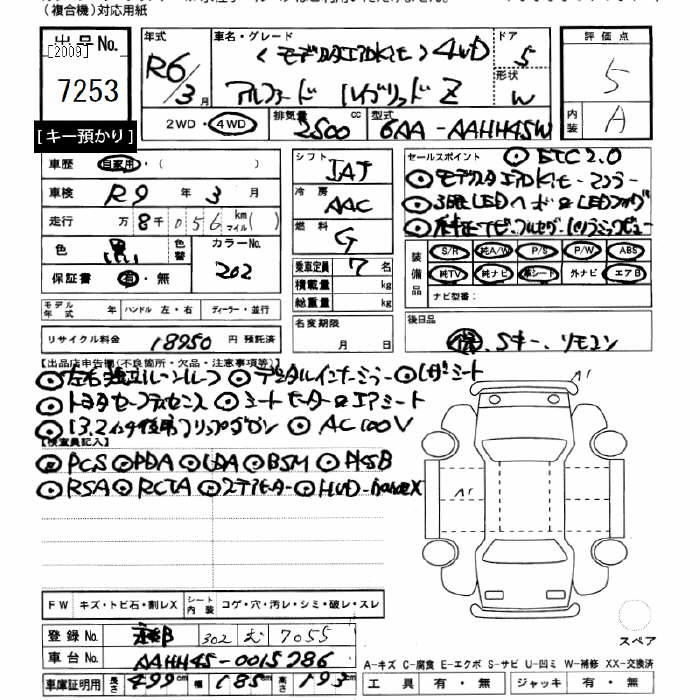 (複合機)対応用紙
出品No.
[2009]
7253
[キー預かり]
年式
R6/3月
車名・グレード
(モデリスタエアロKit) 4WD
アルファード ハイブリッド Z
ドア
5
形状
W
評価点
5
内装
A
2WD・4WD
排気量
2500
cc
型式
6AA-AAHH45W
車歴
自家用・( )
車検
R9 年 3 月
走行
万 8千 056 km マイル( )
色
黒
色替
カラーNo.
202
保証書
有・無
シフト
IAT
冷房
AAC
燃料
G
乗車定員 7 名
積載量 kg
総重量 kg
セールスポイント
ETC2.0
モデリスタエアロKit・マフラー
3眼LEDヘッド&LEDフォグ
装備品
S/R
純A/W
P/S
P/W
ABS
純TV
純ナビ
革シート
外ナビ
エアB
ナビ型番:
モデル年式 年
ハンドル 左・右
ディーラー・並行
リサイクル料金 18950 円 預託済
名変期限
月 日
後日品
保、Sキー、リモコン
【出品店申告欄(不良箇所・欠品・注意事項等)】
左右独立ムーンルーフ デジタルインナーミラー レザーシート
トヨタセーフティセンス シートヒーター&エアシート
13.2インチ後席フリップダウン AC100V
【検査員記入】
PCS PDA LDA BSM AHB
RSA RCTA ステアヒーター HUD
A'
A'
FW
キズ・トビ石・割レX
シート内装
コゲ・穴・汚レ・シミ・破レ・スレ
登録No.
302 む 7055
車台No.
AAHH45-0015286
車庫証明用
長さ 499cm 幅 185cm 高さ 193cm
スペア
A-キズ C-腐食 E-エクボ S-サビ U-凹ミ W-補修 XX-交換済
工具 有・無
ジャッキ 有・無